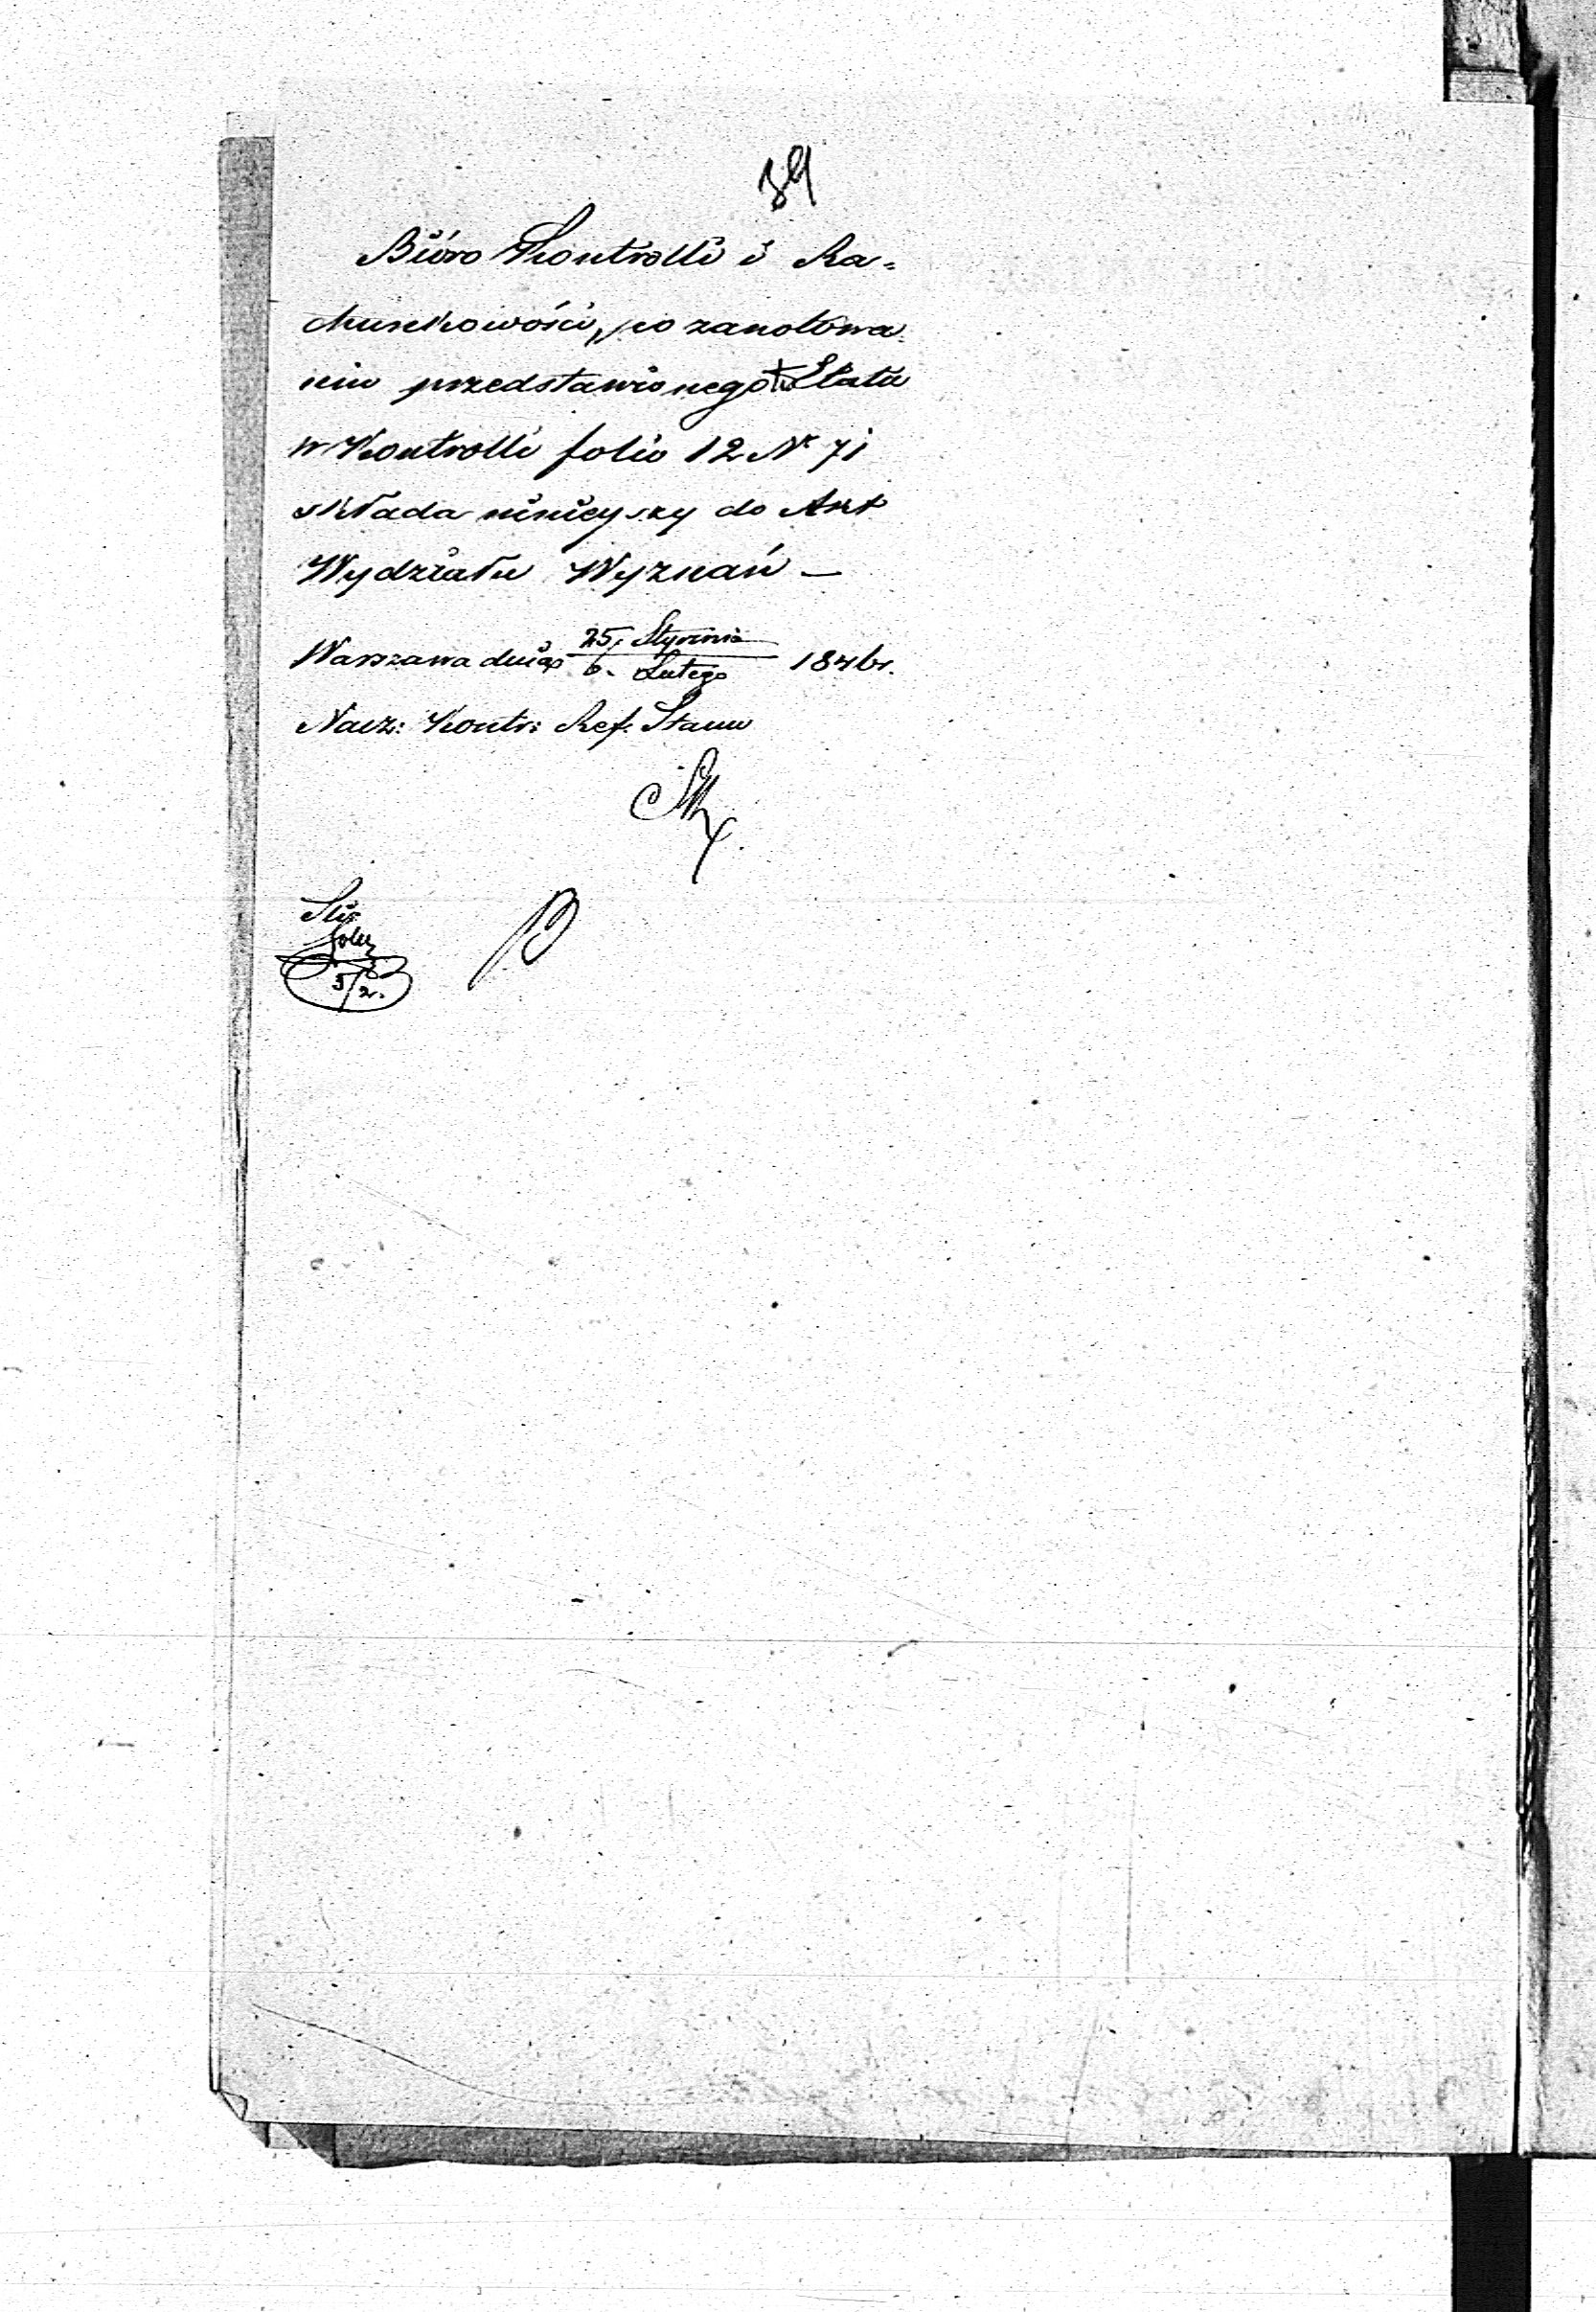 39
Bióro Kontrolli i Ra=
chunkowości, po zanotowa=
niu przedstawionego tu Etatu
w Kontrolli folio 12 Nr 71
składa niniejszy do Akt
Wydziału Wyznań —
Warszawa dnia 25. Stycznia / 6. Lutego 1846 r.
Nacz: Kontr: Ref. Stanu
5/2.